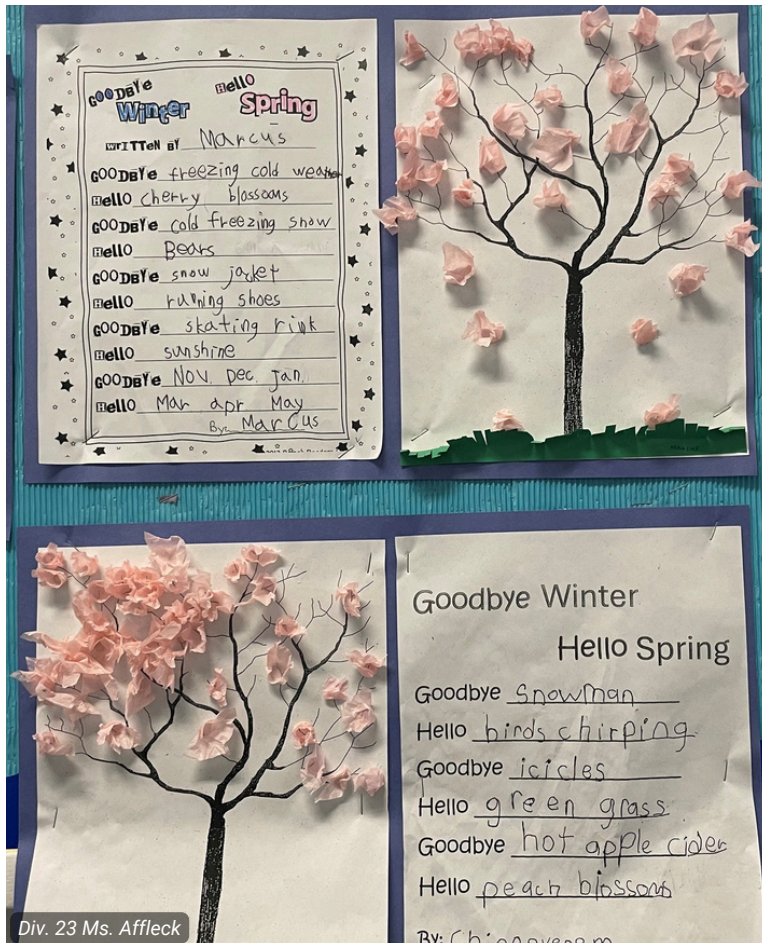 GOODBYE Hello
Winter Spring
WRITTEN BY Marcus
GOODBYE freezing cold weather
Hello cherry blossoms
GOODBYE cold freezing snow
Hello Bears
GOODBYE snow jacket
Hello running shoes
GOODBYE skating rink
Hello sunshine
GOODBYE Nov. Dec. Jan.
Hello Mar apr May
By: Marcus
Goodbye Winter
Hello Spring
Goodbye snowman
Hello birds chirping
Goodbye icicles
Hello green grass
Goodbye hot apple cider
Hello peach blossoms
By:
Div. 23 Ms. Affleck